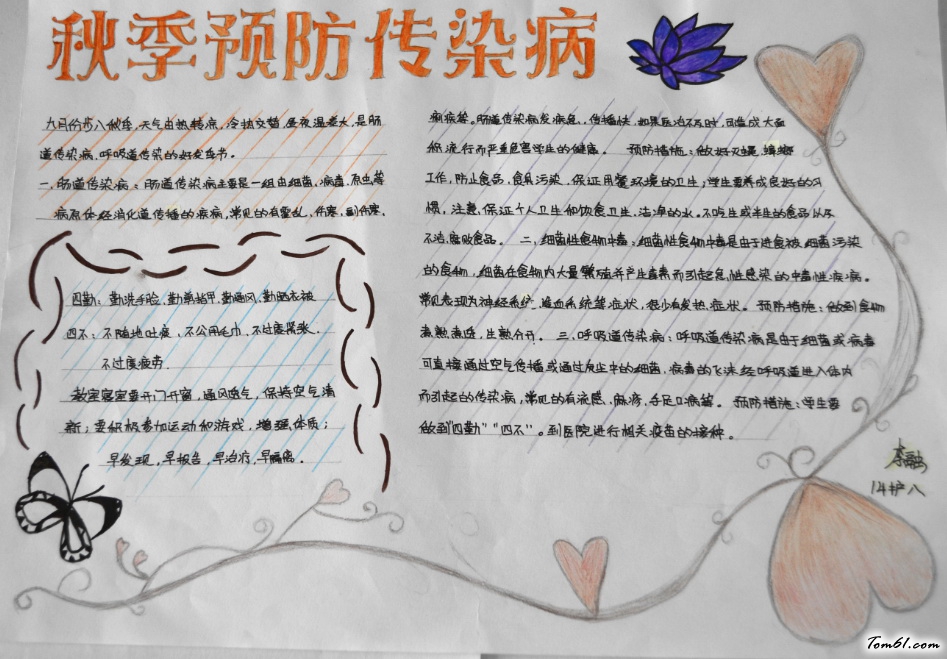 秋季预防传染病
九月份步入秋季，天气由热转凉，冷热交替，昼夜温差大，是肠
道传染病、呼吸道传染的好发季节。
一、肠道传染病：肠道传染病主要是一组由细菌、病毒、原虫等
病原体经消化道传播的疾病，常见的有霍乱，伤寒，副伤寒，
四勤：勤洗手脸、勤剪指甲、勤通风、勤晒衣被
四不：不随地吐痰、不公用毛巾、不过度紧张、
不过度疲劳.
教室寝室要开门开窗，通风透气，保持空气清
新；要积极参加运动和游戏，增强体质；
早发现，早报告，早治疗，早隔离.
痢疾等。肠道传染病发病急、传播快，如果医治不及时，可造成大面
积流行而严重危害学生的健康。 预防措施：做好灭蝇、蟑螂
工作，防止食品、食具污染、保证用餐环境的卫生；学生要养成良好的习
惯，注意，保证个人卫生和饮食卫生，洁净的水。不吃生或半生的食品以及
不洁、腐败食品。 二、细菌性食物中毒：细菌性食物中毒是由于进食被细菌污染
的食物，细菌在食物内大量繁殖并产生毒素而引起急性感染的中毒性疾病。
常见表现为神经系统、造血系统等症状，很少有发热症状。 预防措施：做到食物
煮熟煮透，生熟分开。 三、呼吸道传染病：呼吸道传染病是由于细菌或病毒
可直接通过空气传播或通过灰尘中的细菌，病毒的飞沫经呼吸道进入体内
而引起的传染病，常见的有流感、麻疹、手足口病等。 预防措施：学生要
做到"四勤""四不"。到医院进行相关疫苗的接种。
14护八
Tom61.com